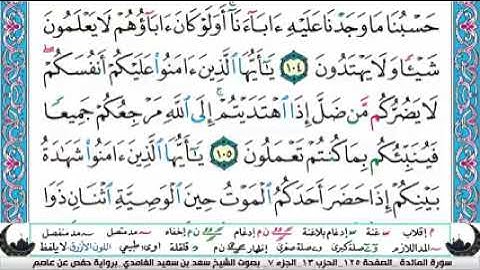 حَسْبُنَا مَا وَجَدْنَا عَلَيْهِ ءَابَآءَنَآۚ أَوَلَوْ كَانَ ءَابَآؤُهُمْ لَا يَعْلَمُونَ
شَيْـًٔا وَلَا يَهْتَدُونَ ١٠٤ يَـٰٓأَيُّهَا ٱلَّذِينَ ءَامَنُوا۟ عَلَيْكُمْ أَنفُسَكُمْۖ
لَا يَضُرُّكُم مَّن ضَلَّ إِذَا ٱهْتَدَيْتُمْۚ إِلَى ٱللَّهِ مَرْجِعُكُمْ جَمِيعًا
فَيُنَبِّئُكُم بِمَا كُنتُمْ تَعْمَلُونَ ١٠٥ يَـٰٓأَيُّهَا ٱلَّذِينَ ءَامَنُوا۟ شَهَـٰدَةُ
بَيْنِكُمْ إِذَا حَضَرَ أَحَدَكُمُ ٱلْمَوْتُ حِينَ ٱلْوَصِيَّةِ ٱثْنَانِ ذَوَا
م إقلاب غنة إدغام بلاغنة إدغام إخفاء مد متصل مد منفصل
المد اللازم صلة كبرى صلة صغرى إظهار قلقلة اوى طبيعي اللون الأزرق لا يلفظ
سورة المائدة الصفحة ١٢٥ الحزب ١٣ الجزء ٧ بصوت الشيخ سعد بن سعيد الغامدي برواية حفص عن عاصم